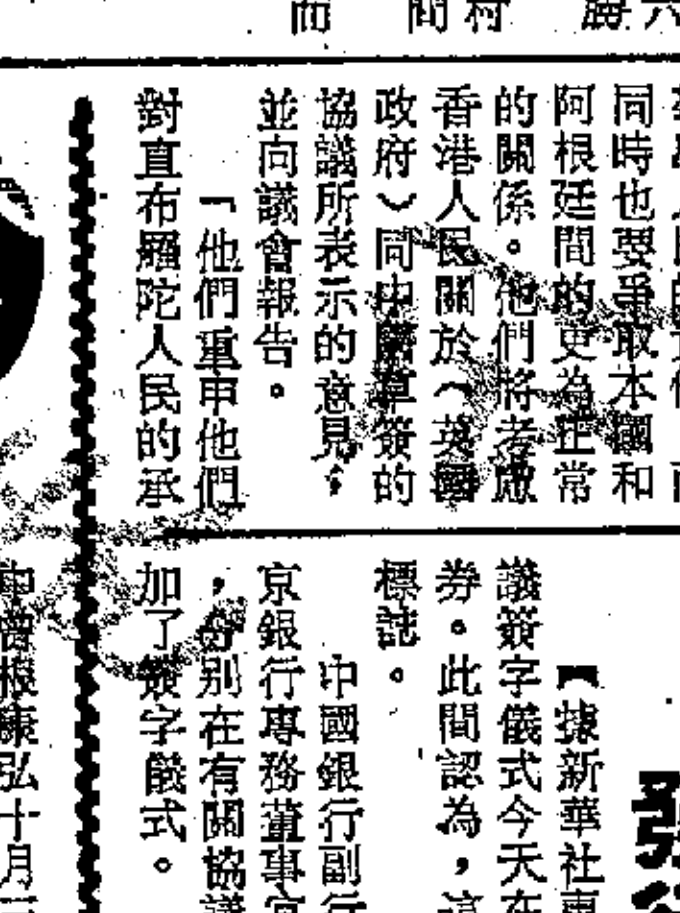 同時也要爭取本國和
阿根廷間的更為正常
的關係。他們將考慮
香港人民關於(英國
政府)同中國草簽的
協議所表示的意見,
並向議會報告。
「他們重申他們
對直布羅陀人民的承
【據新華社東
議簽字儀式今天在
券。此間認為,這
標誌。
中國銀行副行
京銀行專務董事宮
,分別在有關協議
加了簽字儀式。
中曾根康弘十月三